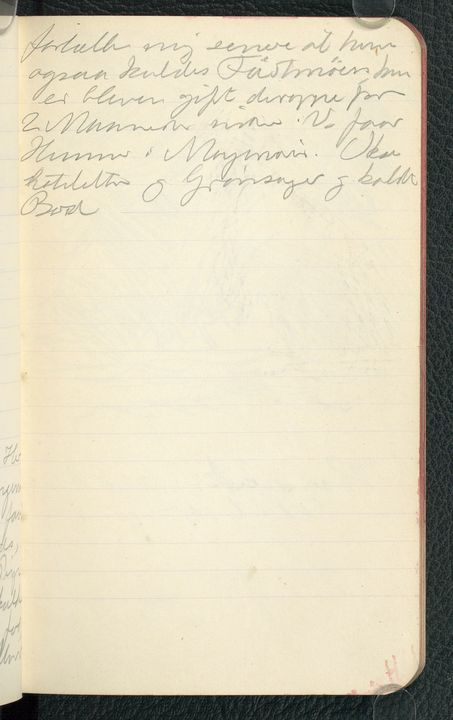 fortalte mig senere at hun
ogsaa kaldes Fästmöen hun
er bleven gift deroppe for
2 Maaneder siden. Vi faar
Hummer i Mayonais. Oxe
koteletter og Grønsager og koldt
Bord